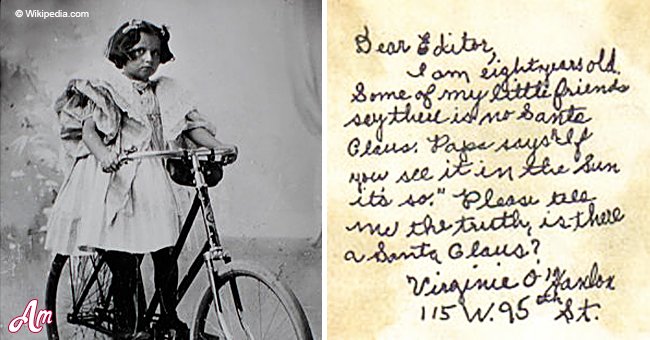 © Wikipedia.com
Am
Dear Editor,
I am eight years old.
Some of my little friends
say there is no Santa
Claus. Papa says "If
you see it in the Sun
it's so." Please tell
me the truth, is there
a Santa Claus?
Virginia O'Hanlon
115 W. 95th St.